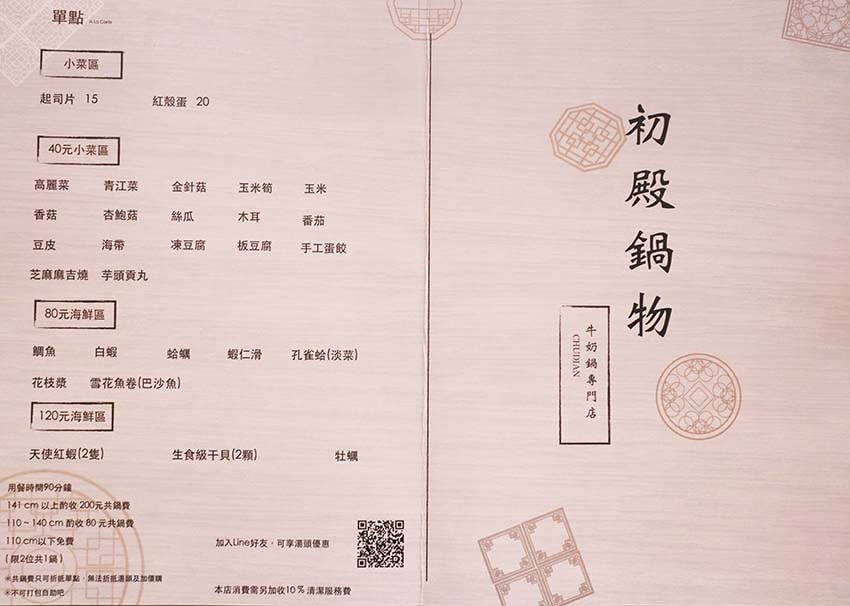 單點 A La Carte
小菜區
起司片 15 紅殼蛋 20
40元小菜區
高麗菜 青江菜 金針菇 玉米筍 玉米
香菇 杏鮑菇 絲瓜 木耳 番茄
豆皮 海帶 凍豆腐 板豆腐 手工蛋餃
芝麻麻吉燒 芋頭貢丸
80元海鮮區
鯛魚 白蝦 蛤蠣 蝦仁滑 孔雀蛤(淡菜)
花枝漿 雪花魚卷(巴沙魚)
120元海鮮區
天使紅蝦(2隻) 生食級干貝(2顆) 牡蠣
用餐時間90分鐘
141 cm 以上酌收 200元共鍋費
110 ~ 140 cm 酌收 80 元共鍋費
110 cm以下免費
( 限2位共1鍋 )
※共鍋費只可折抵單點，無法折抵湯頭及加價購
※不可打包自助吧
加入Line好友，可享湯頭優惠
本店消費需另加收10%清潔服務費
初殿鍋物
牛奶鍋專門店
CHUDIAN